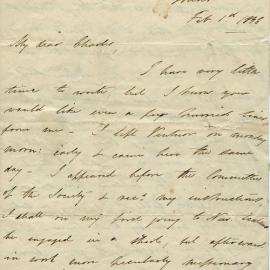 Feb 1st 1848
My dear Charles,
I have very little
time to write but I know you
would like even a few hurried lines
from me - I left Ventnor on monday
morng: early & came here the same
day - I appeared before the Committee
of the Society & recd. my instructions
I shall on my first going to New Zealand
be engaged in a School, but afterward
in work more peculiarly missionary